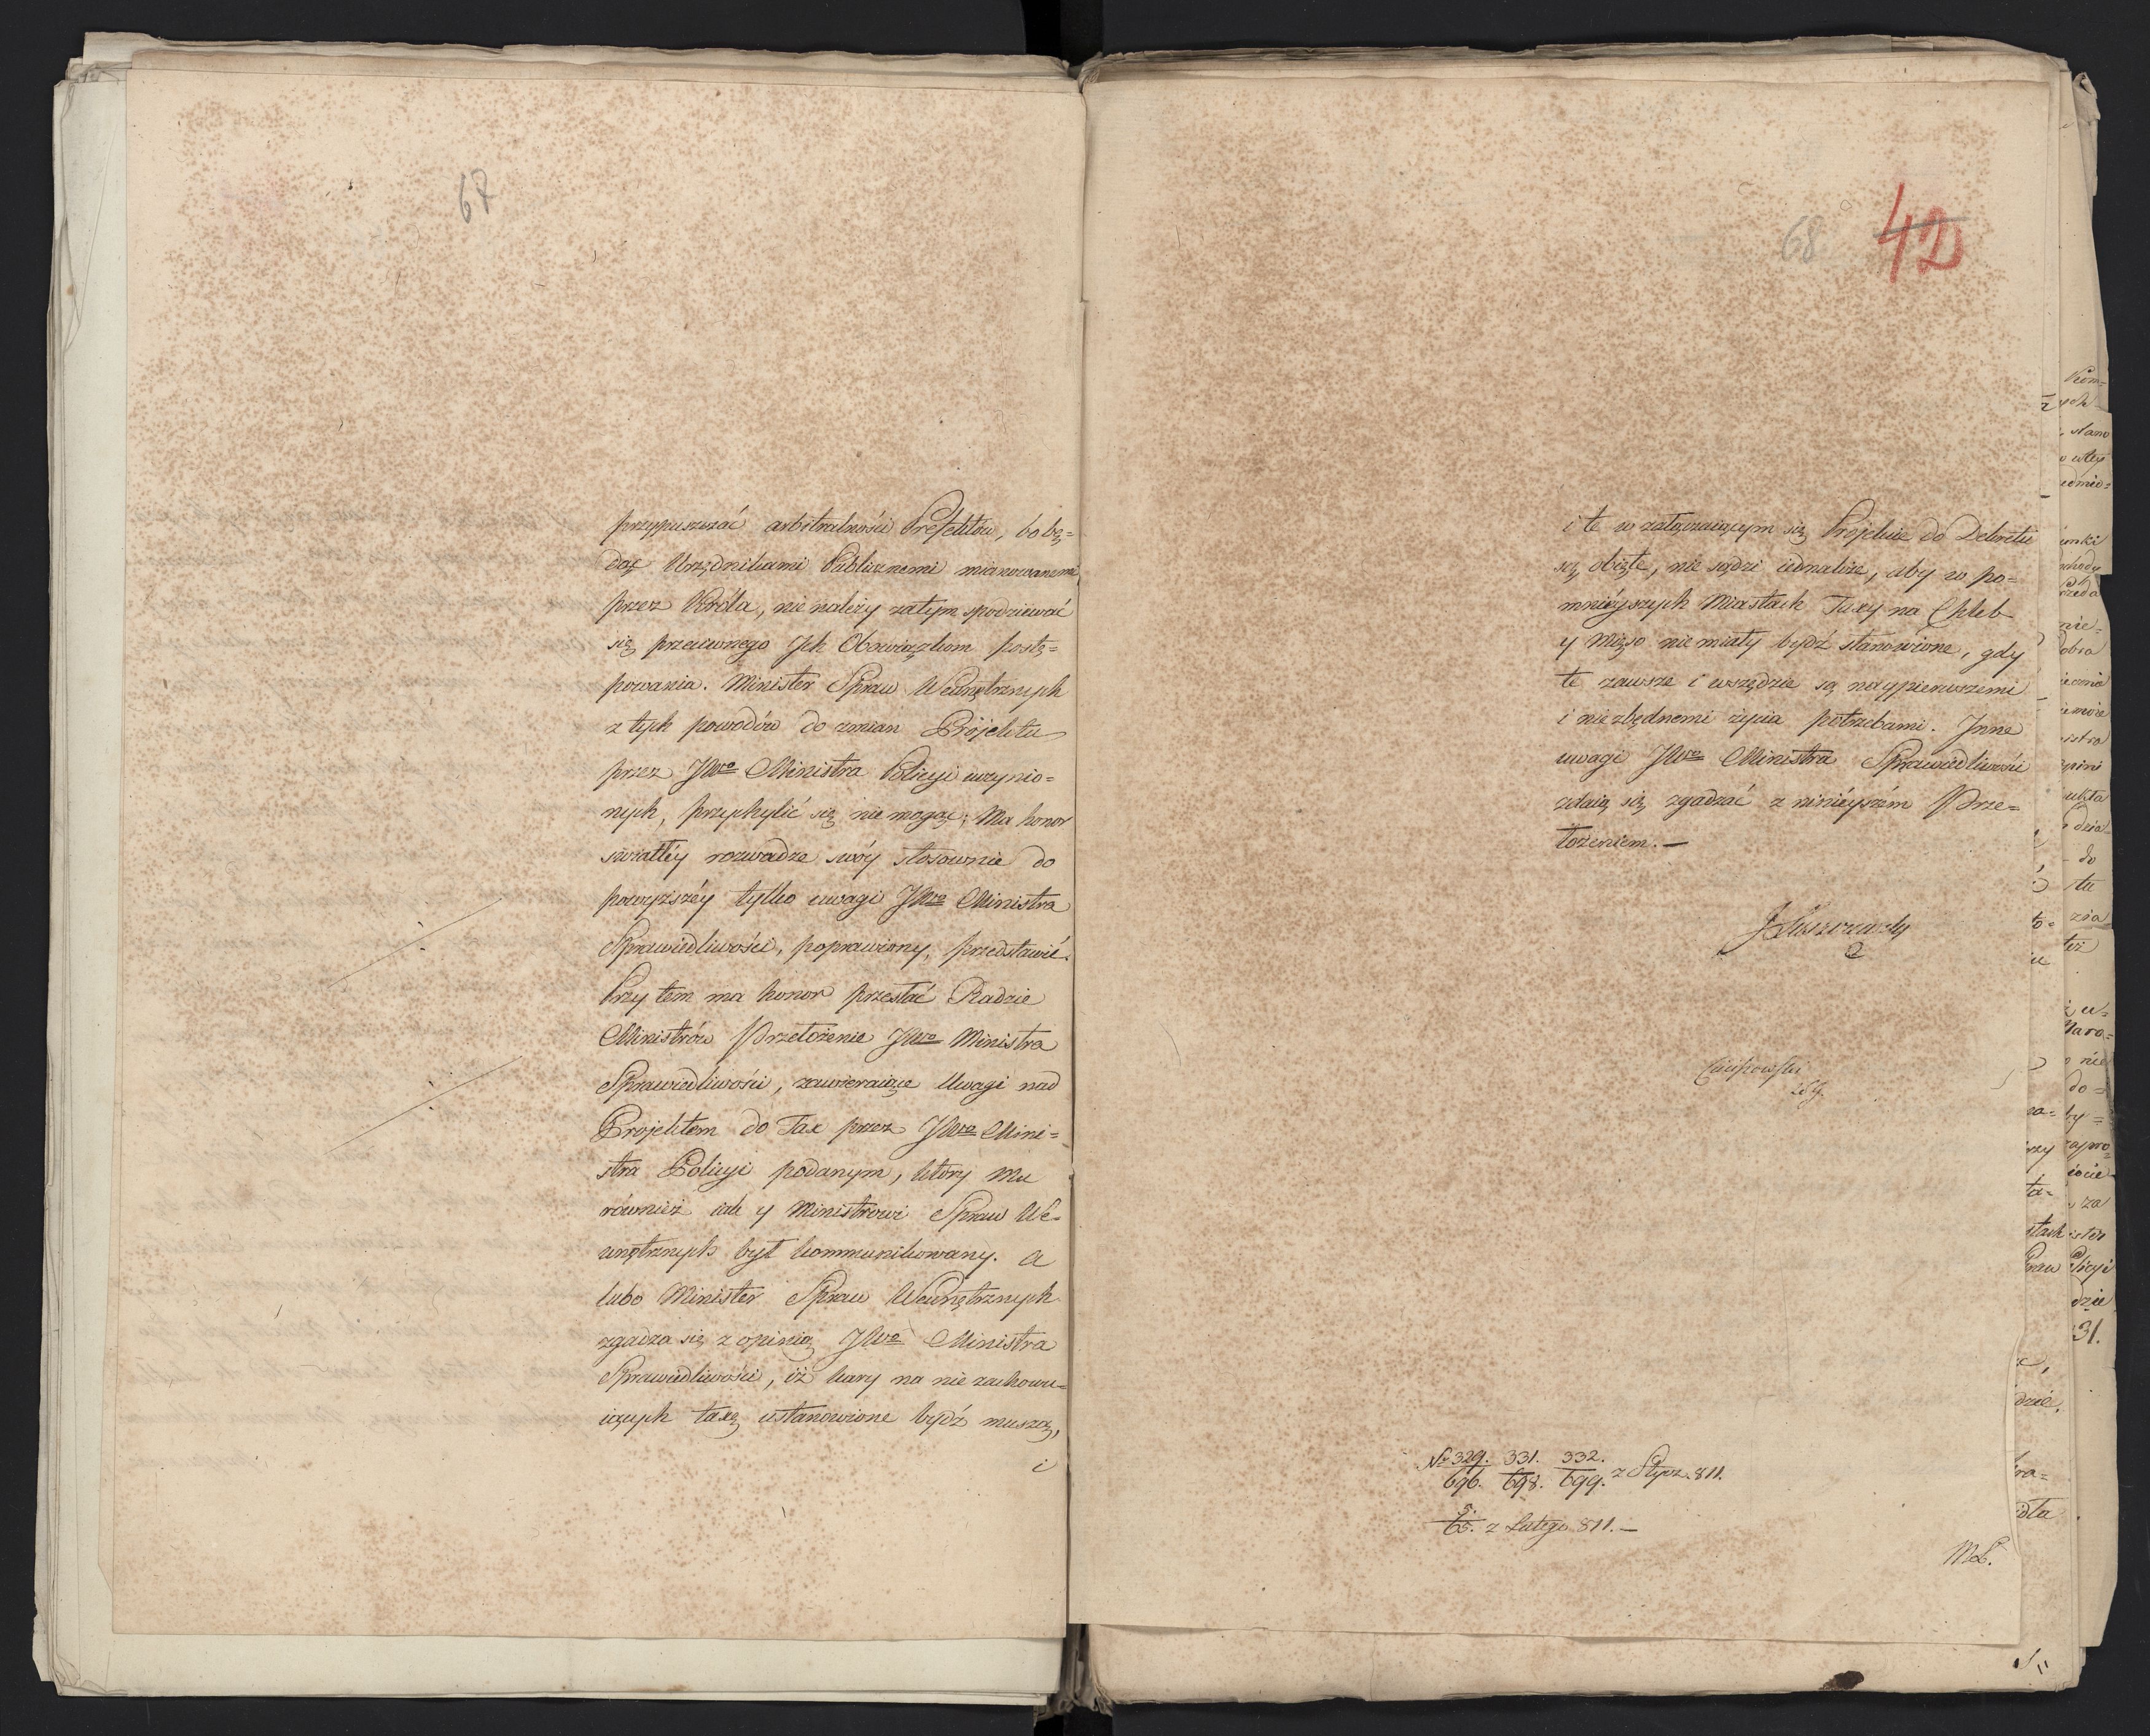 67
przypuszczać arbitralności Prefektów, bo bę=
dąc Urzędnikami Publicznemi mianowanemi
przez Króla, nie należy zatym spodziewać
się przeciwnego Ich Obowiązkom postę=
powania. Minister Spraw Wewnętrznych
z tych powodów do zmian Projektu
przez JWgo Ministra Policyi uczynio=
nych, przychylić się nie mogąc; Ma honor
światłéy rozwadze swóy stosownie do
powyższéy tylko uwagi JWgo Ministra
Sprawiedliwości, poprawiony, przedstawić.
Przy tem ma honor przesłać Radzie
Ministrów Przełożenie JWgo Ministra
Sprawiedliwości, zawieraiące Uwagi nad
Projektem do Tax przez JWgo Mini=
stra Policyi podanym, który mu
również iak y Ministrowi Spraw We=
wnętrznych był kommunikowany. a
lubo Minister Spraw Wewnętrznych
zgadza się z opinią JWgo Ministra
Sprawiedliwości, iż kary na nie zachowu=
iących taxę ustanowione bydź muszą,
i
68 42
i te w załączaiącym się Projekcie do Dekretu
są obięte, nie sądzi iednakże, aby w po=
mniéyszych Miastach Taxy na Chleb
y Mięso nie miały bydź stanowione, gdy
te zawsze i wszędzie są naypierwszemi
i niezbędnemi życia potrzebami. Inne
uwagi JWgo Ministra Sprawiedliwości
zdaią się zgadzać z ninieyszém Prze=
łożeniem. —
No 329. 331. 332.
696. 698. 699. z Stycz. 811.
5.
65. z Lutego 811. —